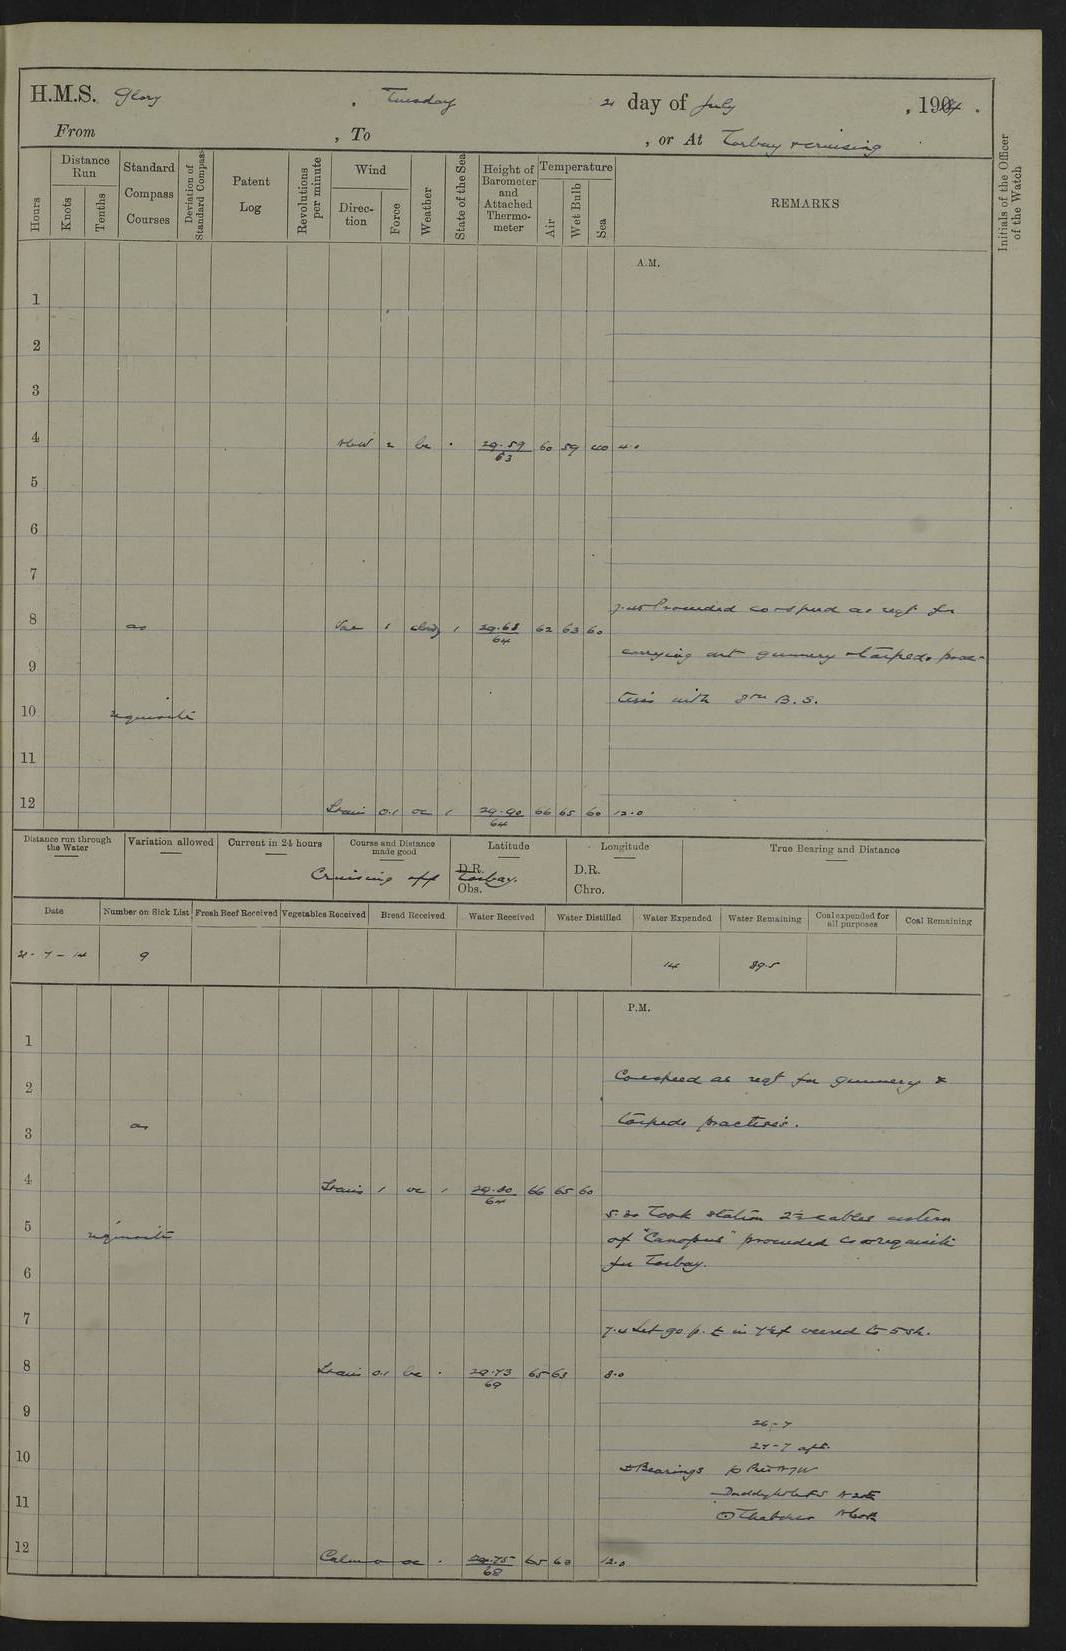 H.M.S. Glory , Tuesday 21 day of July , 1914 .
From , To , or At Torbay & cruising
Hours
Distance Run
Knots
Tenths
Standard Compass Courses
Deviation of Standard Compass
Patent Log
Revolutions per minute
Wind
Direction
Force
Weather
State of the Sea
Height of Barometer and Attached Thermometer
Temperature
Air
Wet Bulb
Sea
REMARKS
Initials of the Officer of the Watch
A.M.
1
2
3
4 2 bc . 29.59 63 60 59 60 4.0
5
6
7
7.45 Proceeded co & speed as reqt for
8 as 1 cloudy 1 29.68 64 62 63 60
carrying out gunnery & torpedo prac-
9
tises with 8th B.S.
10 requisite
11
12 0.1 oc 1 29.90 64 66 65 60 12.0
Distance run through the Water
Variation allowed
Current in 24 hours
Course and Distance made good
Latitude
Longitude
True Bearing and Distance
D.R.
D.R.
Cruising off Torbay.
Obs.
Chro.
Date
Number on Sick List
Fresh Beef Received
Vegetables Received
Bread Received
Water Received
Water Distilled
Water Expended
Water Remaining
Coal expended for all purposes
Coal Remaining
21-7-14 9 14 895
P.M.
1
2 Co & speed as reqt for gunnery &
3 as torpedo practises.
4 1 oc 1 29.80 64 66 65 60
5.30 Took station 2½ cables astern
5 requisite of "Canopus" proceeded co as requisite
6 for Torbay.
7
Let go p. in 7 veered to 5 sh.
8 0.1 bc . 29.73 69 65 63 8.0
9
26-7
27-7 aft.
10 Bearings
11
12 Calm 0 oc . 29.75 68 65 63 12.0